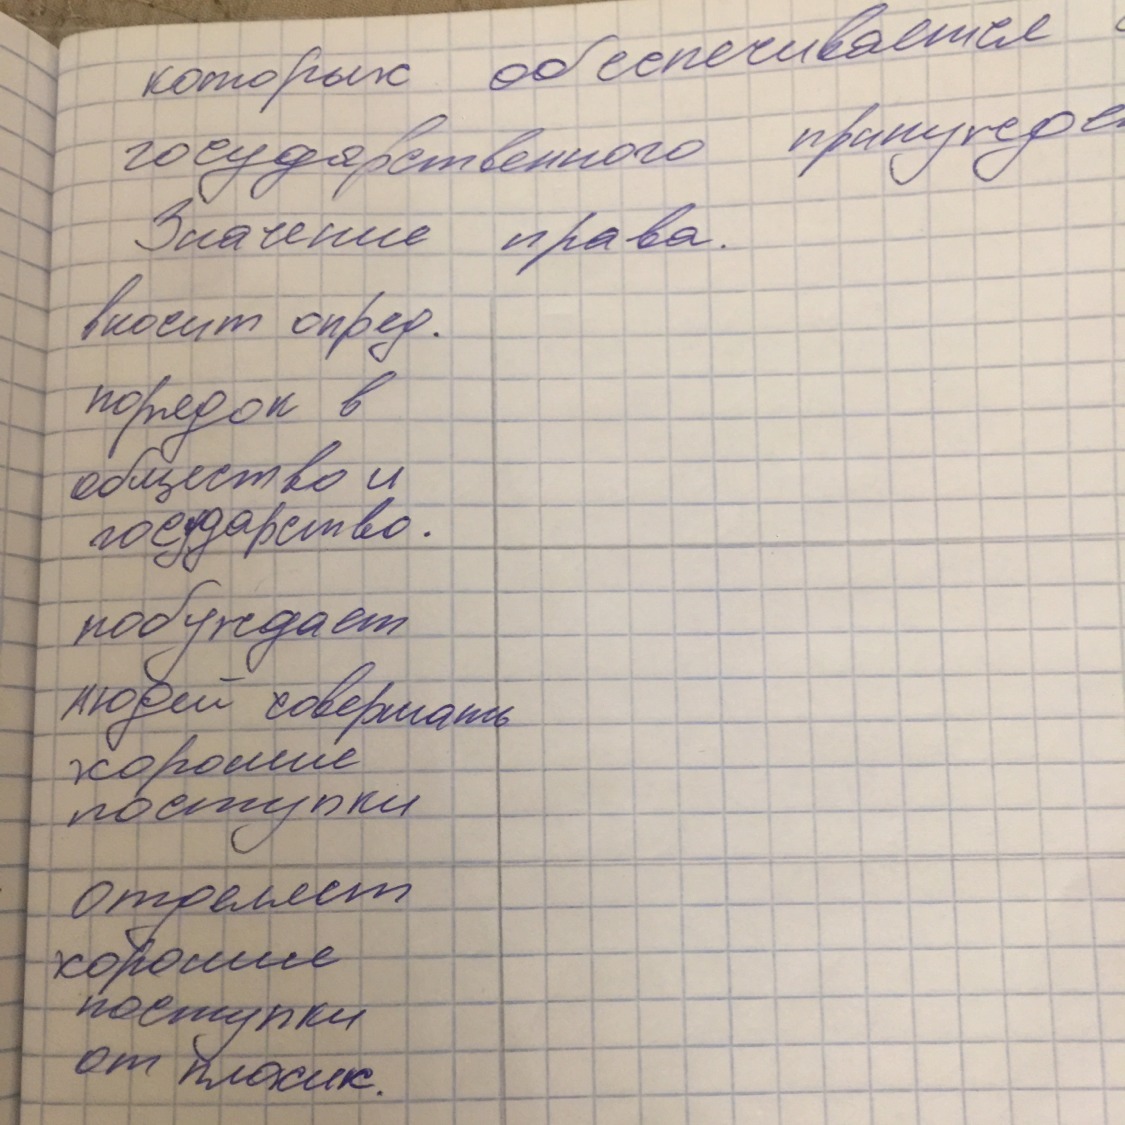 которых обеспечивается
государственного принужден
Значение права.
вносит опред.
порядок в
общество и
государство.
побуждает
людей совершать
хорошие
поступки
отделяет
хорошие
поступки
от плохих.